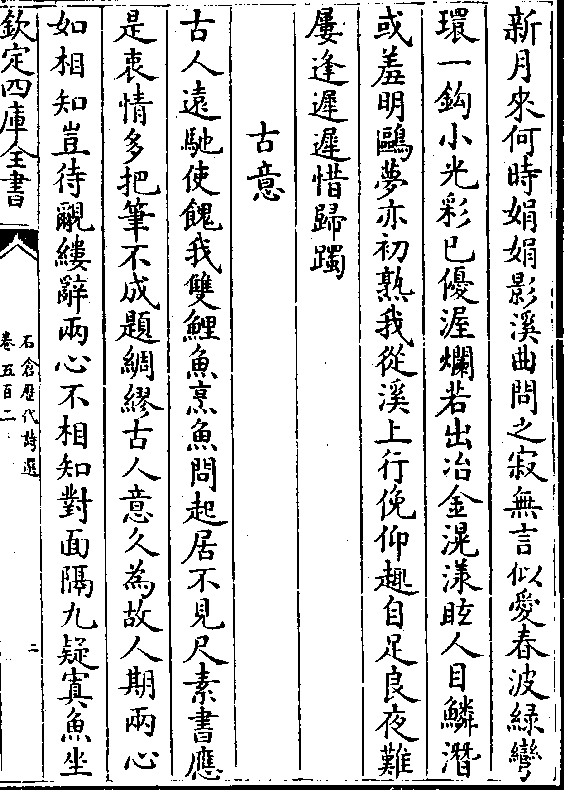 新月來何時娟娟影溪曲問之寂無言似愛春波緑彎
環一鈎小光彩已優渥爛若出冶金滉漾眩人目鱗潛
或羞明鷗夢亦初熟我從溪上行俛仰趣自足良夜難
屢逢遲遲惜歸躅
古意
古人遠馳使餽我雙鯉魚烹魚問起居不見尺素書應
是衷情多把筆不成題綢繆古人意久為故人期兩心
如相知豈待覼縷辭兩心不相知對面隔九疑寘魚坐
欽定四庫全書
石倉歷代詩選
卷五百二
二